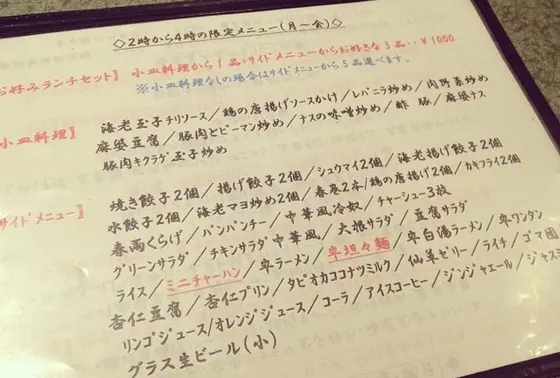 ◇2時から4時の限定メニュー(月～金)◇
お好みランチセット】 小皿料理から1品+サイドメニューからお好きな3品‥¥1000
※小皿料理なしの場合はサイドメニューから5品選べます。
小皿料理】 海老玉子チリソース/鶏の唐揚げソースかけ/レバニラ炒め/肉野菜炒め
麻婆豆腐/豚肉とピーマン炒め/ナスの味噌炒め/酢豚/麻婆ナス
豚肉キクラゲ玉子炒め
サイドメニュー】 焼き餃子2個/揚げ餃子2個/シュウマイ2個/海老揚げ餃子2個
水餃子2個/海老マヨ炒め2個/春巻2本/鶏の唐揚げ2個/カキフライ2個
春雨くらげ/バンバンチー/中華風冷奴/チャーシュー3枚
グリーンサラダ/チキンサラダ中華風/大根サラダ/豆腐サラダ
ライス/ミニチャーハン/半ラーメン/半坦々麺/半白湯ラーメン/半ワンタン
杏仁豆腐/杏仁プリン/タピオカココナツミルク/仙草ゼリー/ライチ/ゴマ団
リンゴジュース/オレンジジュース/コーラ/アイスコーヒー/ジンジャエール/ジャス
グラス生ビール(小)